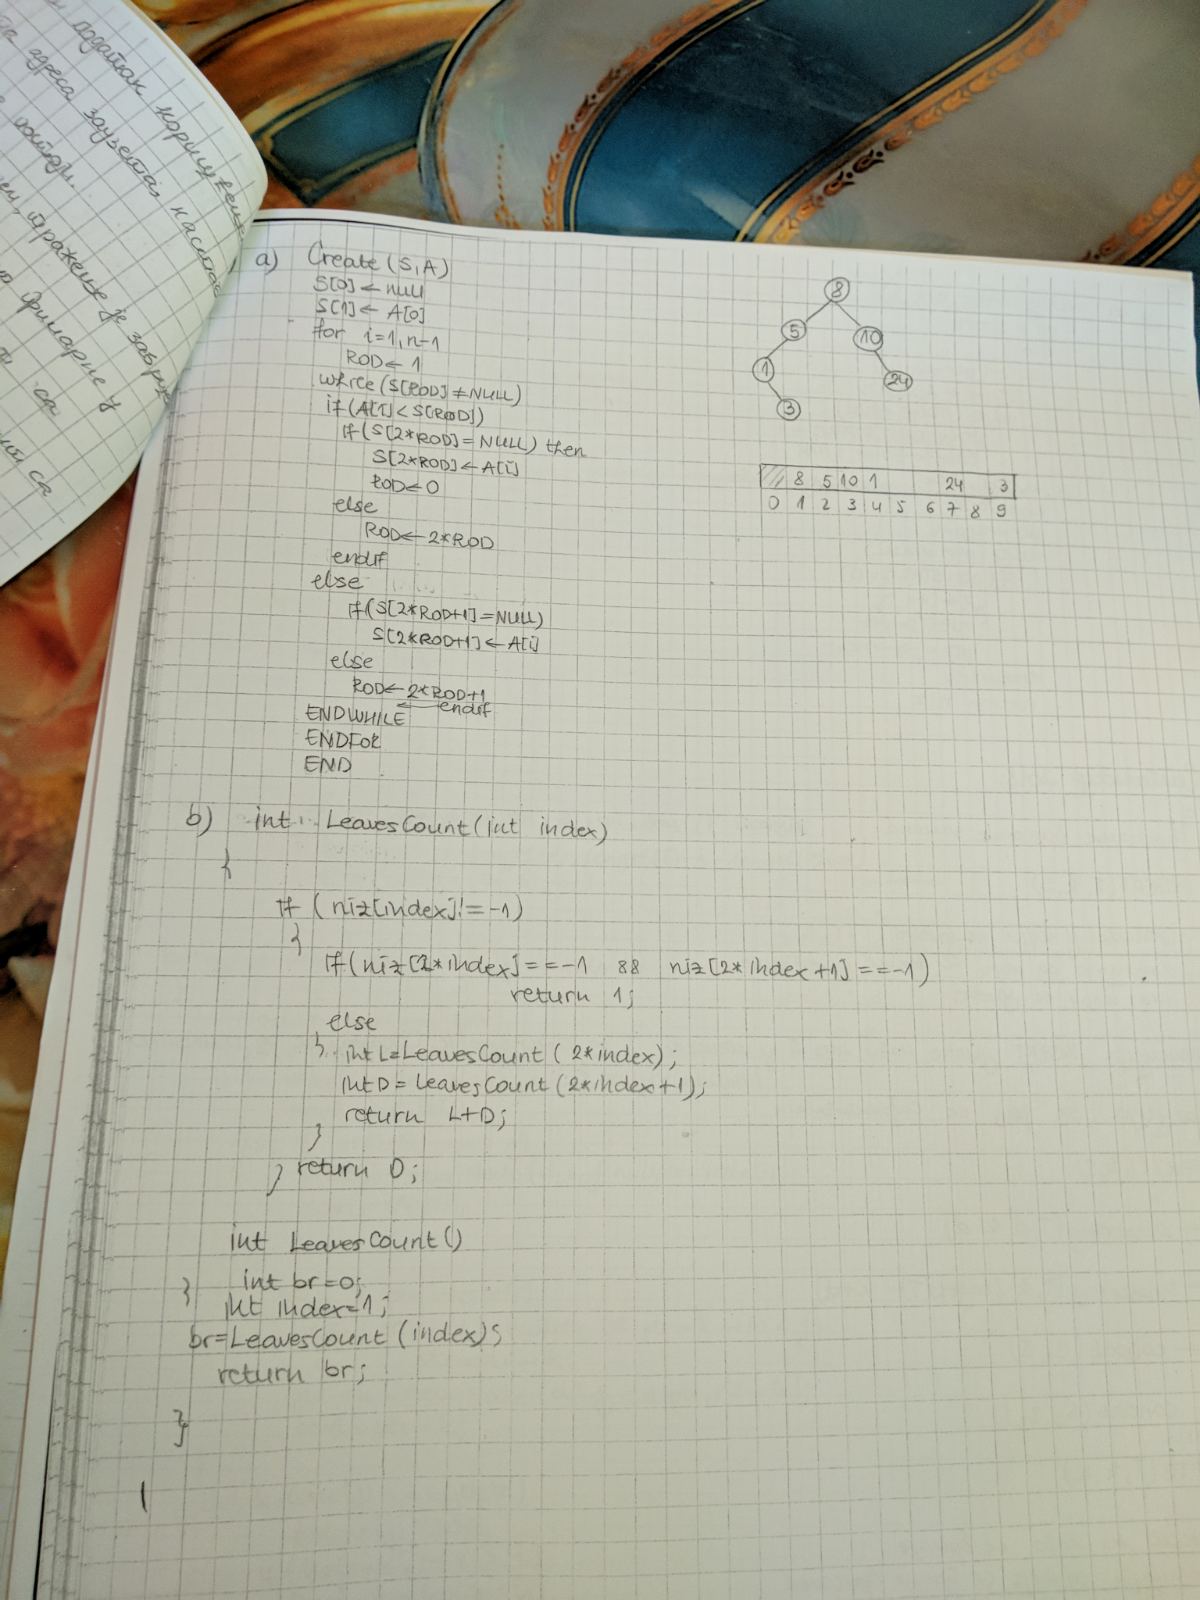 додатак коришћен
адреса заузета, наста
тражење је забр
примарне у
са
са
a) Create (S, A)
S[0] ← null
S[1] ← A[0]
for i=1, n-1
ROD ← 1
while (S[ROD] ≠ NULL)
if (A[i] < S[ROD])
if (S[2*ROD] = NULL) then
S[2*ROD] ← A[i]
ROD ← 0
else
ROD ← 2*ROD
endif
else
if (S[2*ROD+1] = NULL)
S[2*ROD+1] ← A[i]
else
ROD ← 2*ROD+1
endif
ENDWHILE
ENDFOR
END
8
5 10
1 24
3
8 5 10 1 24 3
0 1 2 3 4 5 6 7 8 9
b) int LeavesCount (int index)
{
if (niz[index] != -1)
{
if (niz[2*index] == -1 && niz[2*index+1] == -1)
return 1;
else
{ int L = LeavesCount (2*index);
int D = LeavesCount (2*index+1);
return L+D;
}
} return 0;
int LeavesCount ()
{ int br=0;
int index=1;
br=LeavesCount (index);
return br;
}